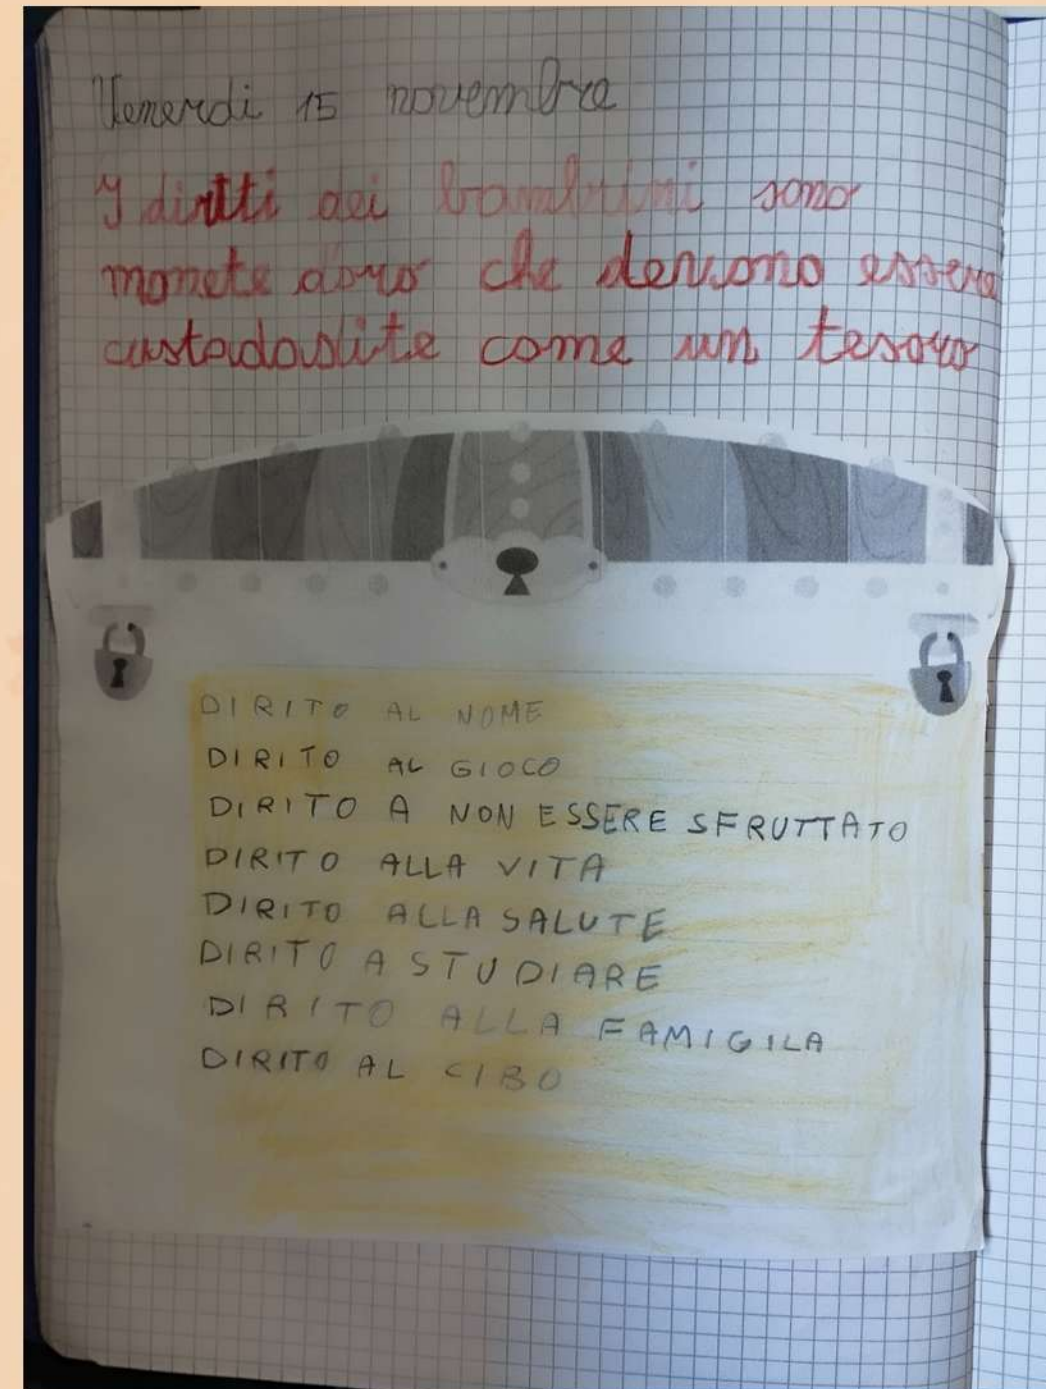 Venerdi 15 novembre
I diritti dei bambini sono
monete d'oro che devono essere
come un tesoro
DIRITO AL NOME
DIRITO AL GIOCO
DIRITO A NON ESSERE SFRUTTATO
DIRITO ALLA VITA
DIRITO ALLA SALUTE
DIRITO A STUDIARE
DIRITO ALLA FAMIGILA
DIRITO AL CIBO